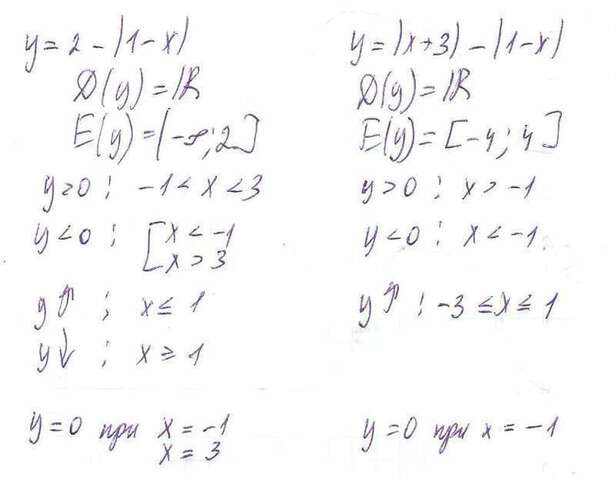 y = 2 - |1-x|
D(y) = ℝ
E(y) = (-∞; 2]
y>0 : -1 < x < 3
y<0 : [x < -1
x > 3
y↑ : x ≤ 1
y↓ : x ≥ 1
y=0 при x = -1
x = 3
y = |x+3| - |1-x|
D(y) = ℝ
E(y) = [-4; 4]
y>0 : x > -1
y<0 : x < -1
y↑ : -3 ≤ x ≤ 1
y=0 при x = -1